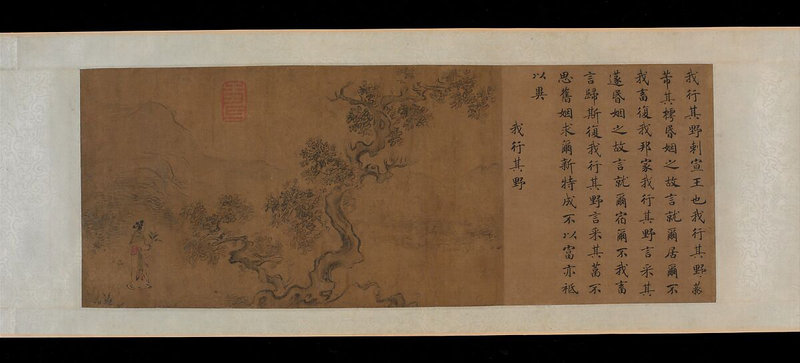 我行其野刺宣王也我行其野蔽
芾其樗昏姻之故言就爾居爾不
我畜復我邦家我行其野言采其
蓫昏姻之故言就爾宿爾不我畜
言歸斯復我行其野言采其葍不
思舊姻求爾新特成不以富亦祗
以異
我行其野